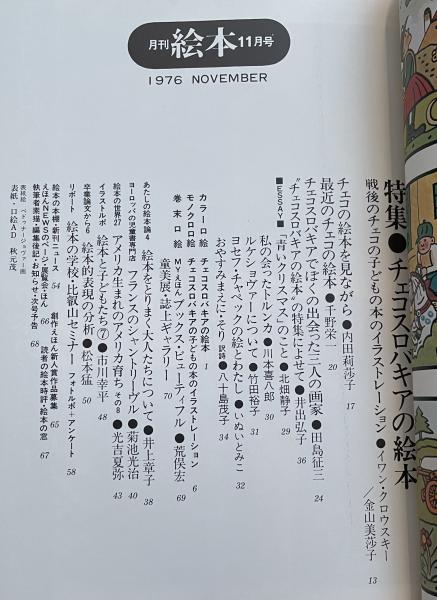 月刊 絵本 11月号
1976 NOVEMBER
特集●チェコスロバキアの絵本
戦後のチェコの子どもの本のイラストレーション●イワン・クロウスキー／金山美莎子 13
チェコの絵本を見ながら●内田莉莎子 17
最近のチェコの絵本●千野栄一 20
チェコスロバキアでぼくの出会った三人の画家●田島征三 24
“チェコスロバキアの絵本”の特集によせて●井出弘子 36
■ESSAY■
「青いクリスマス」のこと●北畑静子 29
私の会ったトルンカ●川本喜八郎 30
ルケショヴァーについて●竹田裕子 31
ヨセフ・チャペックの絵とわたし●いぬいとみこ 32
おやすみまえに・そり（訳詩）●八十島茂子 34
カラー口絵 チェコスロバキアの絵本 1
モノクロ口絵 チェコスロバキアの子どもの本のイラストレーション 6
巻末口絵 MYえほん ブックス・ビューティフル●荒俣宏 69
童美展・誌上ギャラリー 70
あたしの絵本論4 絵本をとりまく大人たちについて●井上章子 38
ヨーロッパの児童書専門店 フランスのシャントリーヴル●菊池光治 40
絵本の世界27 アメリカ生まれのアメリカ育ち その8●光吉夏弥 43
イラストルポ 絵本と子どもたち⑦●市川幸平 48
卒業論文から6 絵本的表現の分析●松本猛 50
リポート 絵本の学校・比叡山セミナー フォトルポ＋アンケート 58
絵本の本棚・新刊ニュース 54
創作えほん新人賞作品募集 65
えほんNEWSのページ・展覧会・ほん 66
読者の絵本時評・絵本の窓 67
執筆者素描・編集後記・お知らせ・次号予告 68
表紙・口絵AD 秋元茂